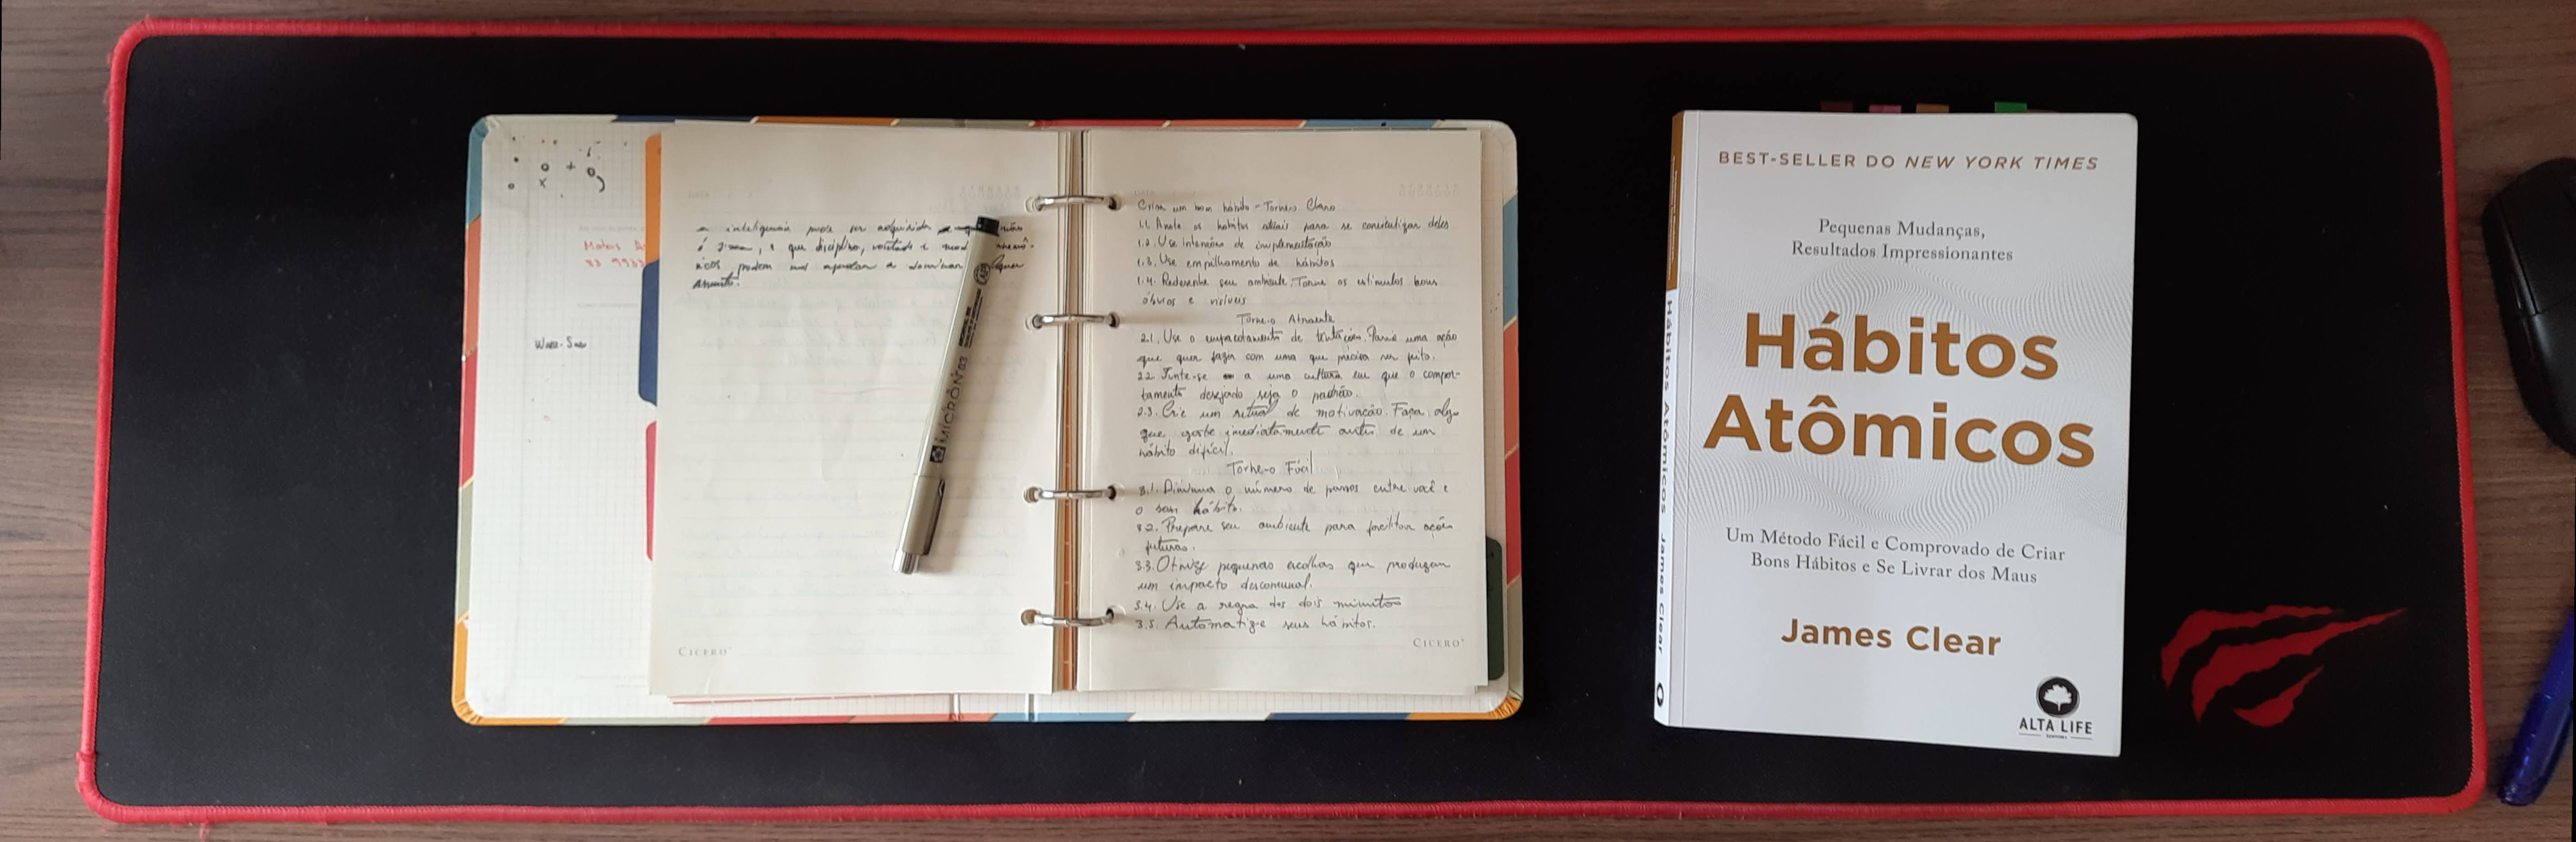 Matos
83 9933
WABI-SABI
a inteligencia pode ser adquirida não
é , e que disciplina, vontade e
podem nos ajudar a dominar
assunto.
MICRON 03
CICERO
Crise um bom hábito - Torne-o Claro
1.1. Anote os hábitos atuais para se concientizar deles
1.2. Use intensões de implementação
1.3. Use empilhamento de hábitos
1.4. Redesenhe seu ambiente. Torne os estímulos bons
óbvios e visíveis
Torne-o Atraente
2.1. Use o empacotamento de tentações. Parie uma ação
que quer fazer com uma que precisa ser feita.
2.2 Junte-se a uma cultura em que o compor-
tamento desejado seja o padrão.
2.3. Crie um ritual de motivação. Faça algo
que goste imediatamente antes de um
hábito difícil.
Torne-o Fácil
3.1. Diminua o número de passos entre você e
o seu hábito.
3.2. Prepare seu ambiente para facilitar ações
futuras.
3.3. Otimize pequenas escolhas que produzem
um impacto descomunal.
3.4. Use a regra dos dois minutos
3.5. Automatize seus hábitos.
CICERO
Hábitos Atômicos James Clear
BEST-SELLER DO NEW YORK TIMES
Pequenas Mudanças,
Resultados Impressionantes
Hábitos
Atômicos
Um Método Fácil e Comprovado de Criar
Bons Hábitos e Se Livrar dos Maus
James Clear
ALTA LIFE